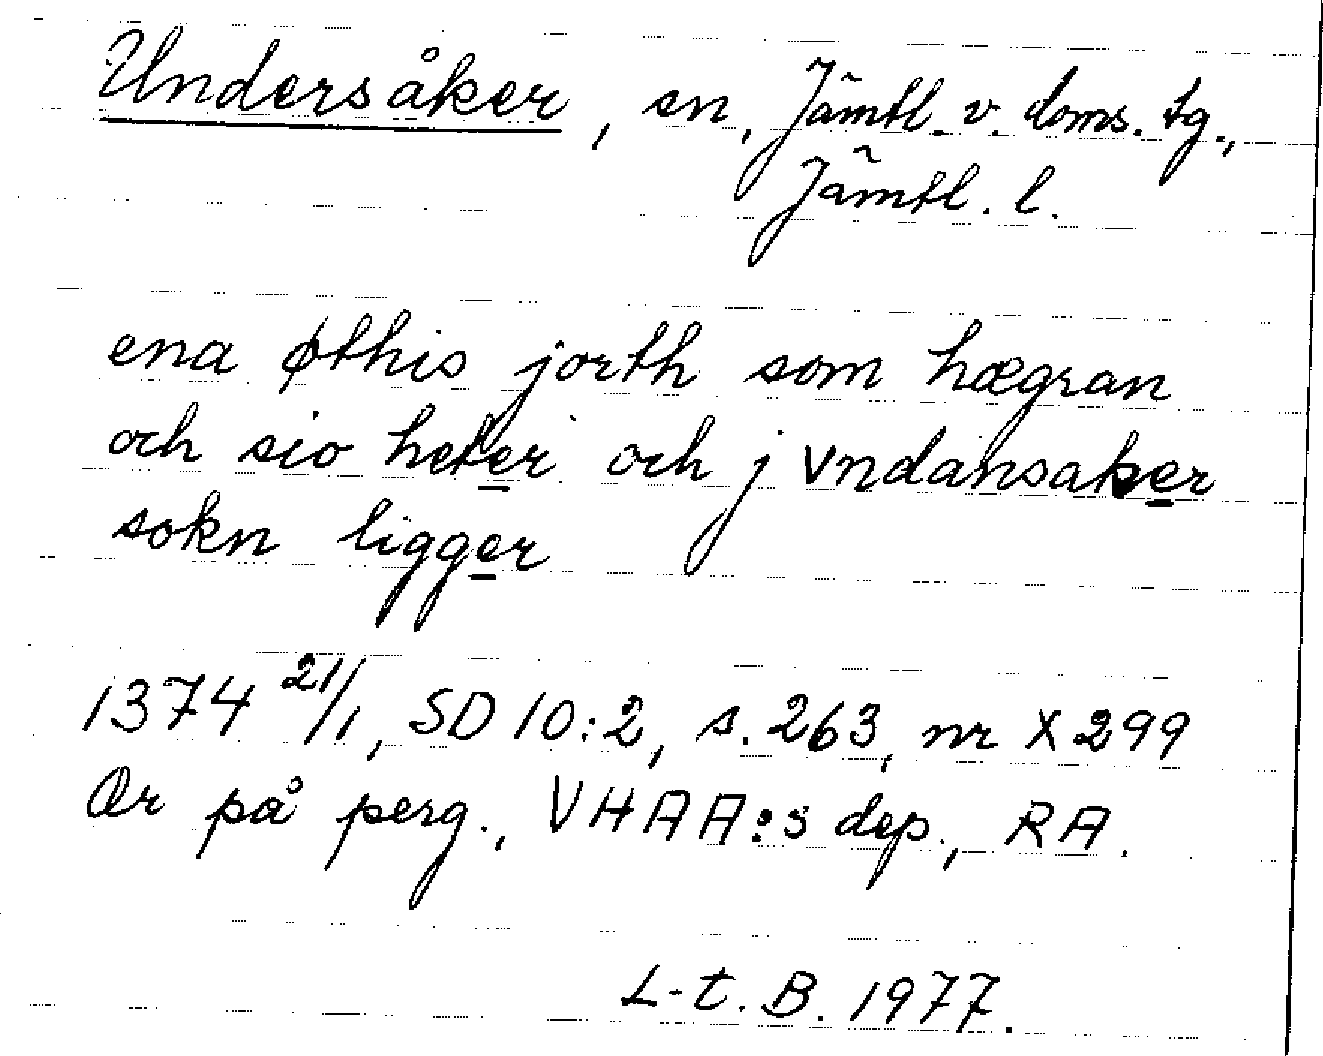 Undersåker, sn, Jämtl. v. doms. tg.,
Jämtl. l.
ena øthis jorth som hægran
och sio heter och j vndansaker
sokn ligger
1374 21/1, SD 10:2, s. 263, nr X 299
Or på perg., VHAA:s dep., RA.
L-t. B. 1977.